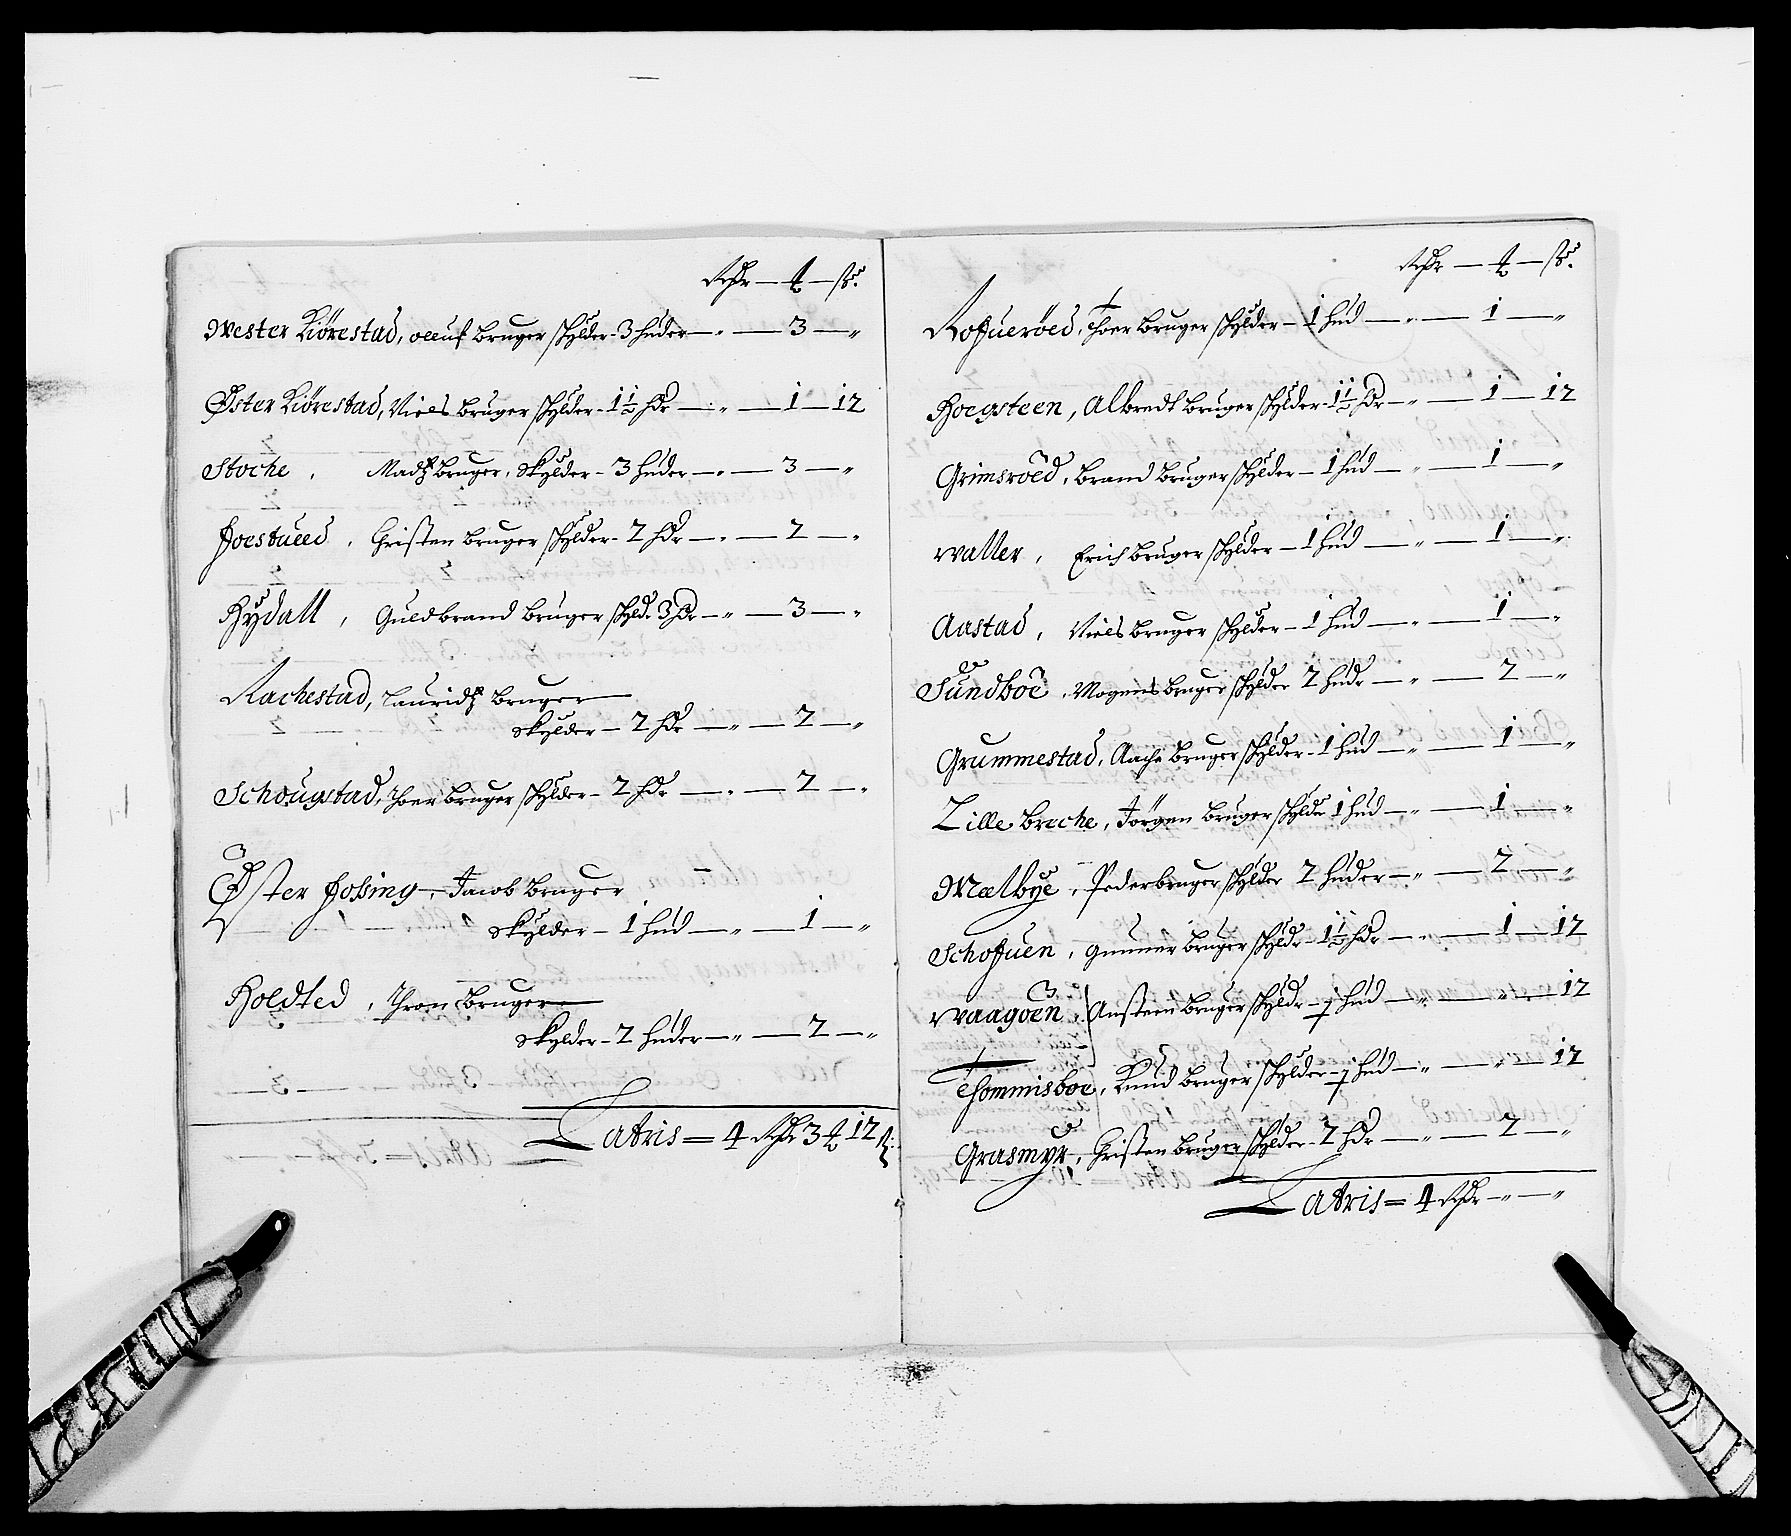 Rhdr — ℔ — ß.
Wester Kiörestad, oluf bruger schylder - 3 huder — „ — 3 — „
Øster Kiörestad, Niels bruger schylder - 1½ hdr — „ — 1 — 12
Stoche, Madß bruger, skylder - 3 huder — „ — 3 — „
Christen bruger schylder - 2 hdr — „ — 2 — „
Rydall, Guldbrand bruger schyld. 3 hdr — „ — 3 — „
Rachestad, Lauridß bruger
skylder — 2 hdr — „ — 2 — „
Schougstad, Thoer bruger schylder - 2 hdr — „ — 2 — „
Øster Fossing, Jacob bruger
skylder — 1 hud — „ — 1 — „
Holdted, Thron bruger
skylder - 2 huder — „ — 2 — „
Latris = 4 Rhdr 3 ℔ 12 ß:
Rhdr — ℔ — ß.
Rofueröed, Thoer bruger schylder - 1 hud — „ — 1 — „
Roegsteen, Albredt bruger schylder - 1½ hdr — „ — 1 — 12
Grimsröed, brand bruger schylder - 1 hud — „ — 1 — „
Waller, Erich bruger schylder - 1 hud — „ — 1 — „
Aastad, Niels bruger schylder - 1 hud — „ — 1 — „
Sundboe, Mogens bruger schylder 2 hudr — „ — 2 — „
Grummestad, Aache bruger schylder - 1 hud — „ — 1 — „
Lille breche, Jörgen bruger schylder 1 hud — „ — 1 — „
Mælbye, Peder bruger schylder 2 huder — „ — 2 — „
Schofuen, gunner bruger schyldr - 1½ hdr — „ — 1 — 12
Waagøen, Ansteen bruger schyldr - ½ hud — „ — „ — 12
Thommisboe, Knud bruger schylder - ½ hud — „ — „ — 12
Grasmyr, Christen bruger schylder - 2 hdr — „ — 2 — „
Latris = 4 Rhdr — „ — „